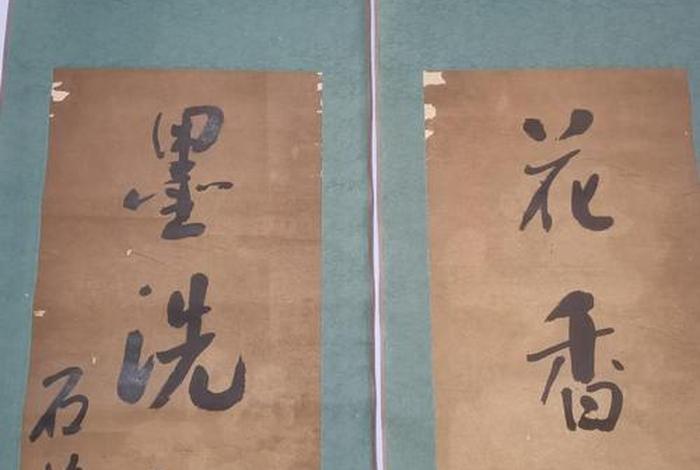 花香
墨洗
石